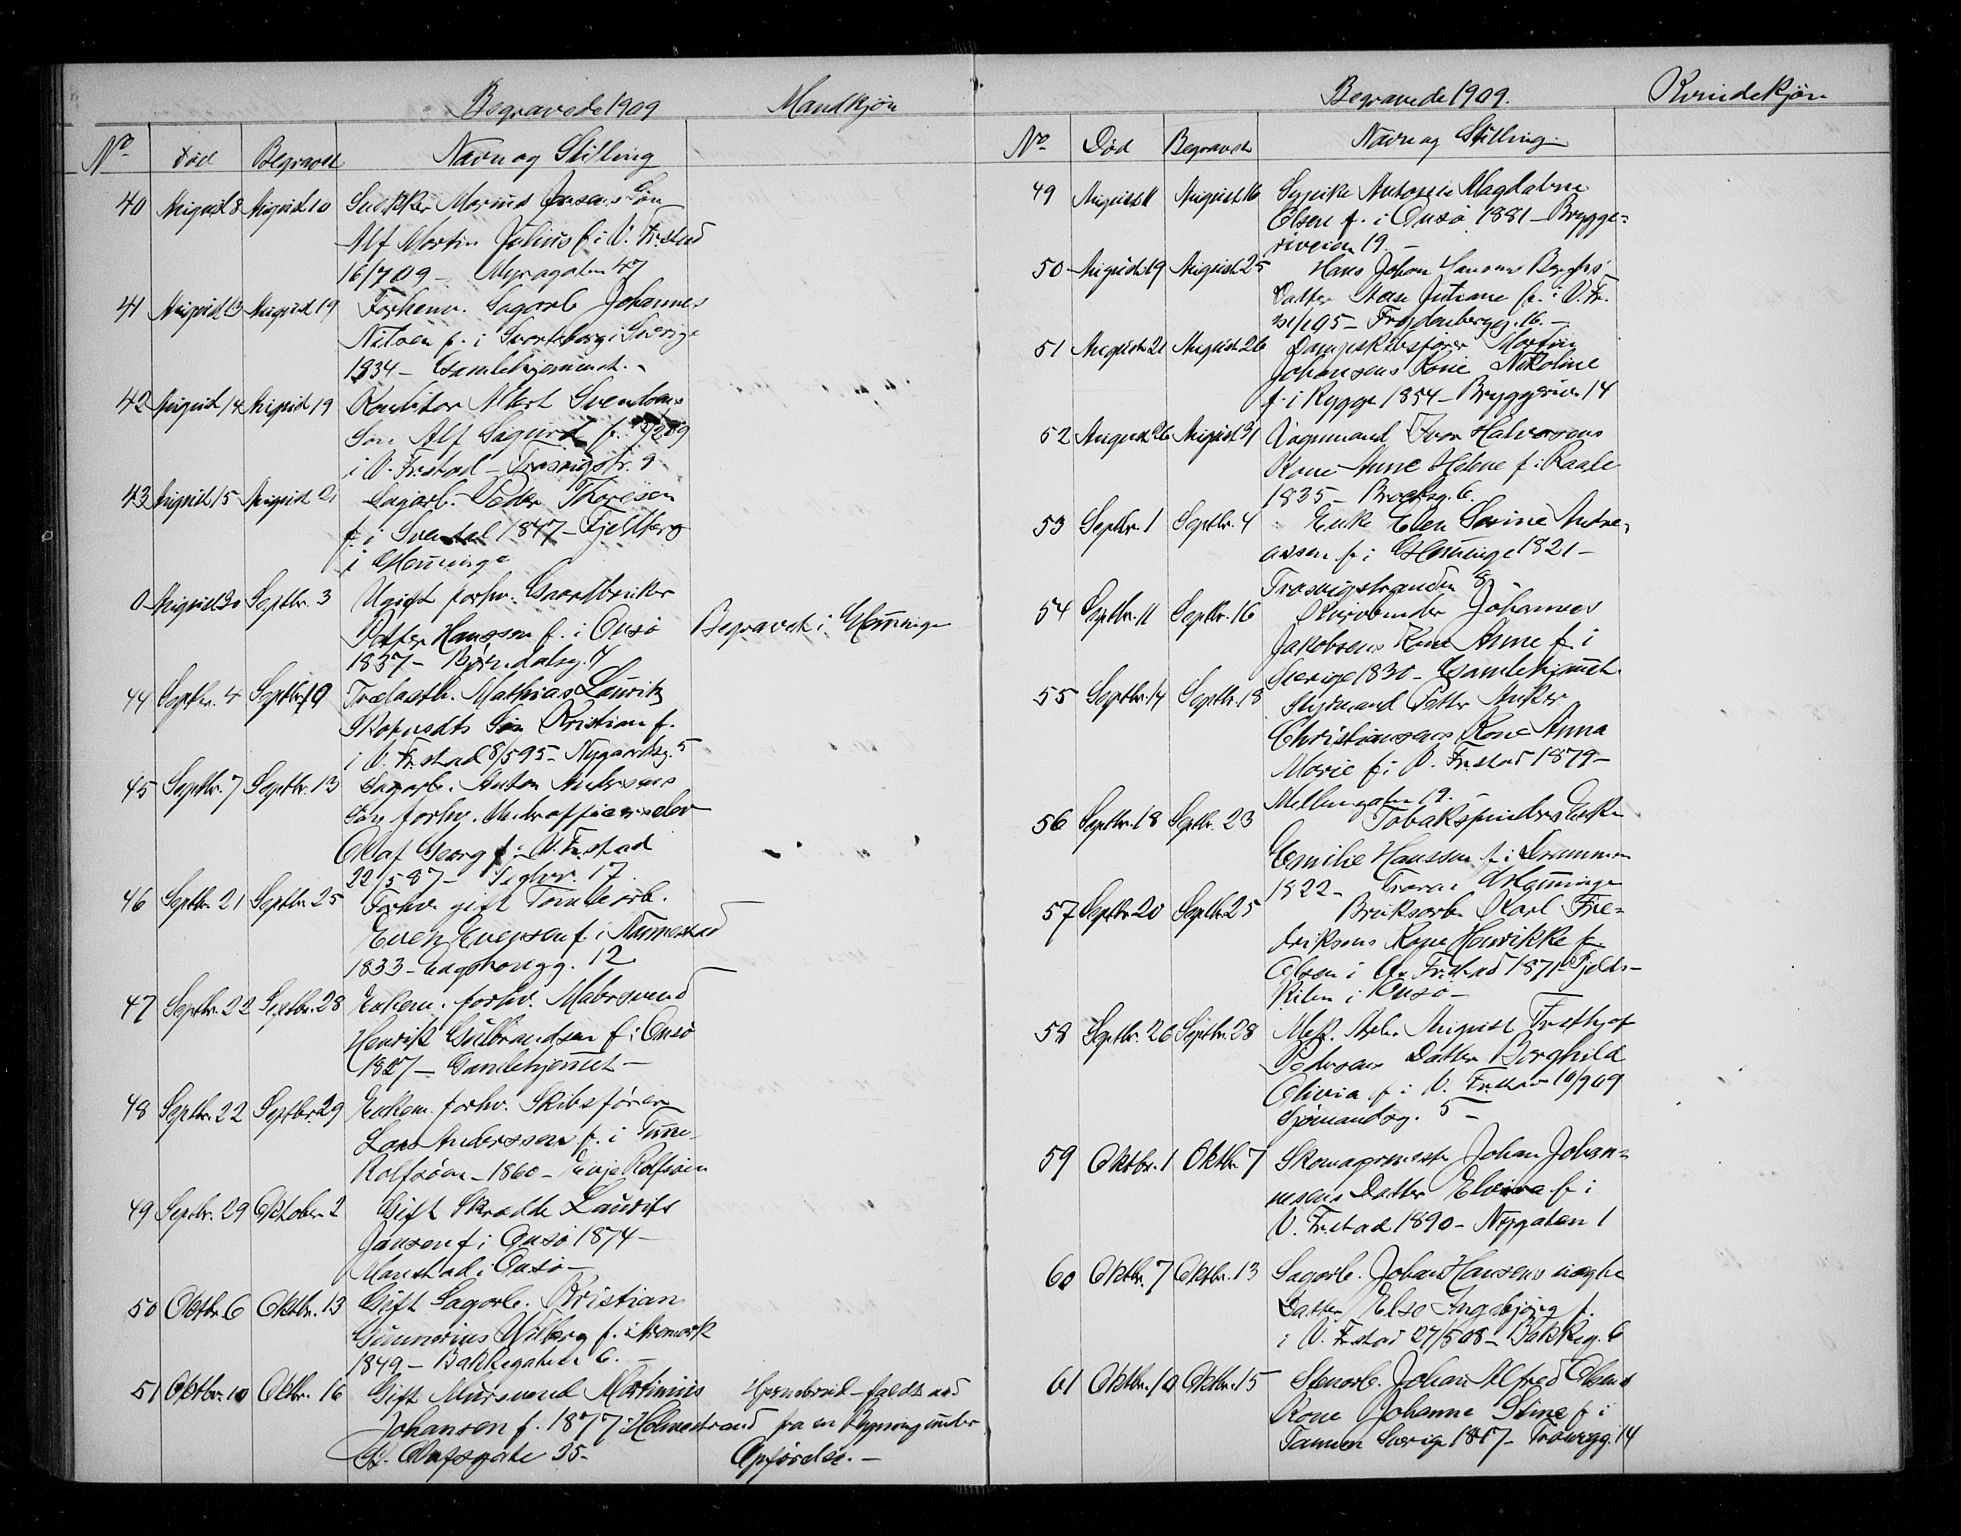 Begravede 1909 Mandkjøn
No Død Begravet Navn og Stilling
40 August 8 August 10 Snekker Jensens Søn
Alf Martin Julius f. i V. Fr.stad
16/7 09 – Myragaten 47
41 August 13 August 19 Forhenv. Sagarb. Johannes
Nilsen f. i Svarteborg i Sverige
1834 – Gamlehjemmet. –
42 August 14 August 19 Konditor Albert Svendsens
Søn Alf Sigurd f. 09
i V. Fr.stad – Trosvigstr. 9
43 August 15 August 21 Sagarb. Peder Thoresen
f. i 1847 – Fjeldberg
i Glemminge
0 August 30 Septbr. 3 Ugift forhv. Gaardbruker
Petter Hanssen f. i Onsø Begravet i Glemminge
1837 – Bjørndalsg. 4
44 Septbr. 4 Septbr. 10 Trælastb. Mathias Lauritz
Søn Kristian f.
i V. Fr.stad 8/5 95 – Nygaardsg. 5
45 Septbr. 7 Septbr. 13 Sagarb. Anton Andersens
Søn forhv. Underofficerselev
Olaf Georg f. i V. Fr.stad
22/5 87 – 17.
46 Septbr. 21 Septbr. 25 Forhv. gift Tomtearb.
Even Evensen f. i
1833 – 12
47 Septbr. 22 Septbr. 28 Enkem. forhv. Matrosvend
Henrik Gulbrandsen f. i Onsø
1827 – Gamlehjemmet –
48 Septbr. 22 Septbr. 29 Enkem. forhv. Skibsfører
Lars Anderssen f. i Tune
Rolfsøen – 1860 – Rolfsøen
49 Septbr. 29 Oktober 2 Gift Skrædder Laurits
Jansen f. i Onsø 1874 –
i Onsø –
50 Oktbr. 6 Oktbr. 13 Gift Sagarb. Kristian
Gunnerius Wilberg f. i Aremark
1849 – Bakkegaten 6. –
51 Oktbr. 10 Oktbr. 16 Gift Mursvend Martinius Hjernebrud – faldt ned
Johansen f. 1877 i Holmestrand fra en Bygning under
St. Olafsgate 35 – Opførelse. –
Begravede 1909. Kvindekjøn
No Død Begravet Navn og Stilling
49 August 11 August 16 Sypike Antonie Magdalene
Olsen f. i Onsø 1881 – Brygge=
riveien 19. –
50 August 19 August 25 Hans Johan Hansens
Datter Juliane f. i V. Fr.
05 – Frydenbergg. 16. –
51 August 21 August 26 Dampskibsfører Martin
Johansens Kone Nikoline
f. i Rygge 1854 – Bryggeriv. 14
52 August 26 August 31 Vognmand Iver Halvorsens
Kone Anne Helene f. i Raade
1835 – Brochsg. 6.
53 Septbr. 1 Septbr. 4 Enke Elen Sørine Andre=
assen f. i Glemminge 1821 –
Trosvigstranden 8
54 Septbr. 11 Septbr. 16 Johannes
Jakobsens Kone Anne f. i
Sverige 1830 – Gamlehjemmet.
55 Septbr. 14 Septbr. 18 Styrmand Petter Anker
Christiansens Kone Anna
Marie f. i V. Fr.stad 1879 –
Mellemgaten 19. –
56 Septbr. 18 Septbr. 23 Tobakspinders Enke
Emilie Hanssen f. i Drammen
1822 – Trara i Glemminge
57 Septbr. 20 Septbr. 25 Bruksarb. Karl Fre=
driksens Kone Henrikke f.
Olsen i Fr.stad 1871 –
i Onsø –
58 Septbr. 26 Septbr. 28 Mek. Arb. August Fridtjof
Pedersens Datter Borghild
Olivia f. i V. Fr.stad 10/9 09
Sjømandsg. 5 –
59 Oktbr. 1 Oktbr. 7 Skomagermester Johan Johan=
nesens Datter Elvira f. i
V. Fr.stad 1890 – Nygaten 1
60 Oktbr. 7 Oktbr. 13 Sagarb. Johan Hansens uægte
Datter Else Ingebjørg f.
i V. Fr.stad 27/5 08 – Bakkeg. 6
61 Oktbr. 10 Oktbr. 15 Stenarb. Johan Alfred Olsens
Kone Johanne Stine f. i
Tanum Sverige 1847 – Trosvigg. 14